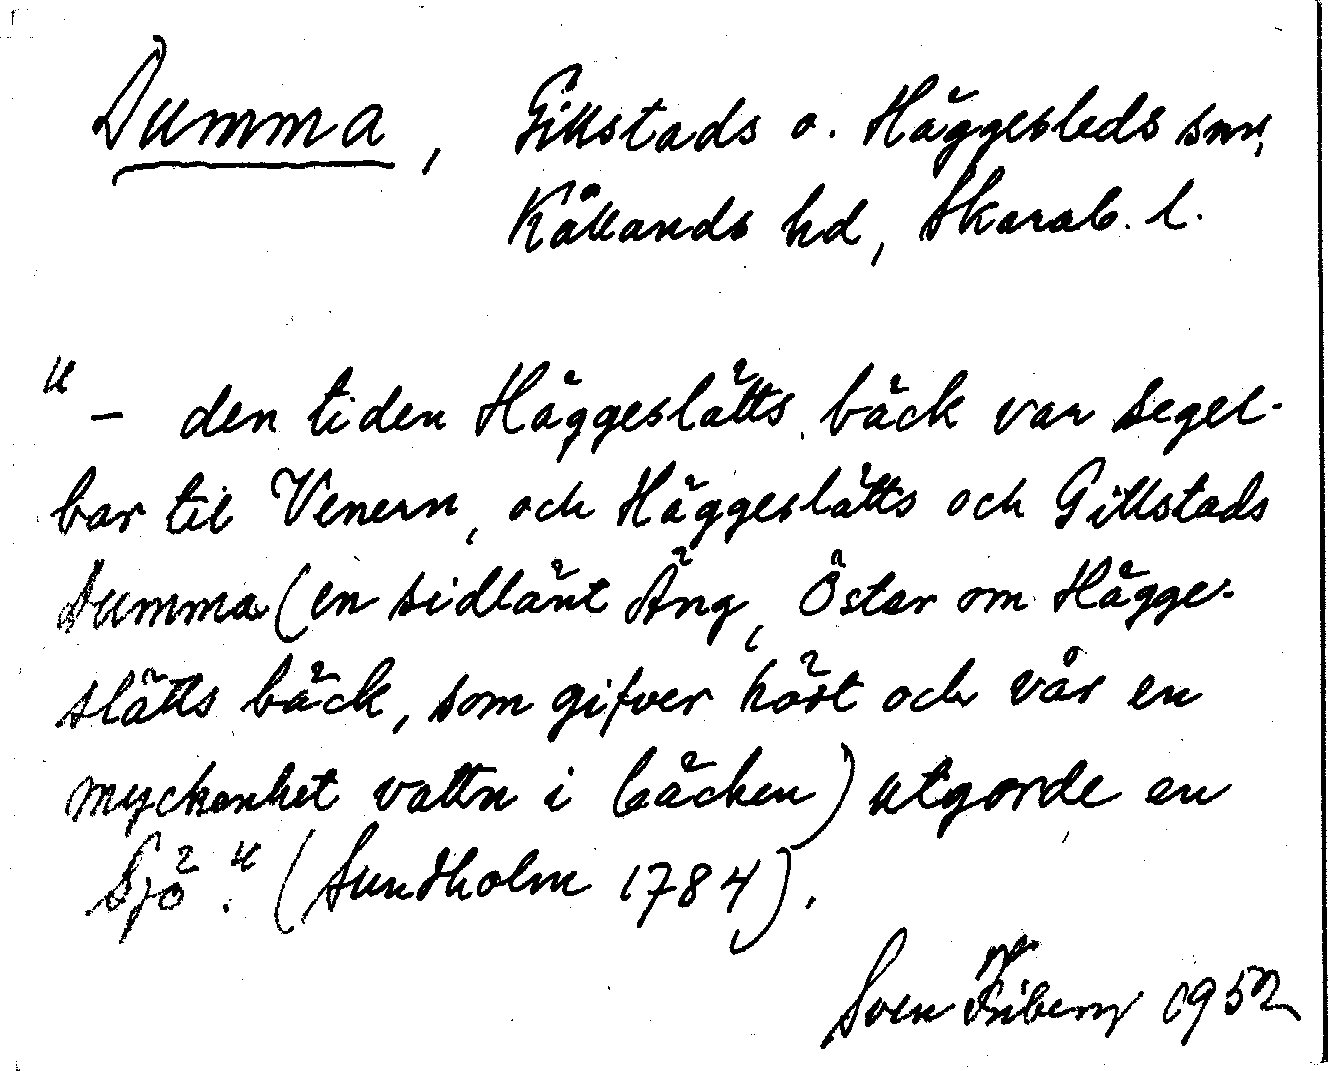 Dumma, Gillstads o. Häggesleds snr,
Kållands hd, Skarab. l.
"– den tiden Häggeslätts bäck var segel-
bar til Venern, och Häggeslätts och Gillstads
Dumma (en sidlänt Äng, Öster om Hägge-
slätts bäck, som gifver höst och vår en
myckenhet vattn i bäcken) utgorde en
Sjö." (Sundholm 1784).
Sven Friberg 1952